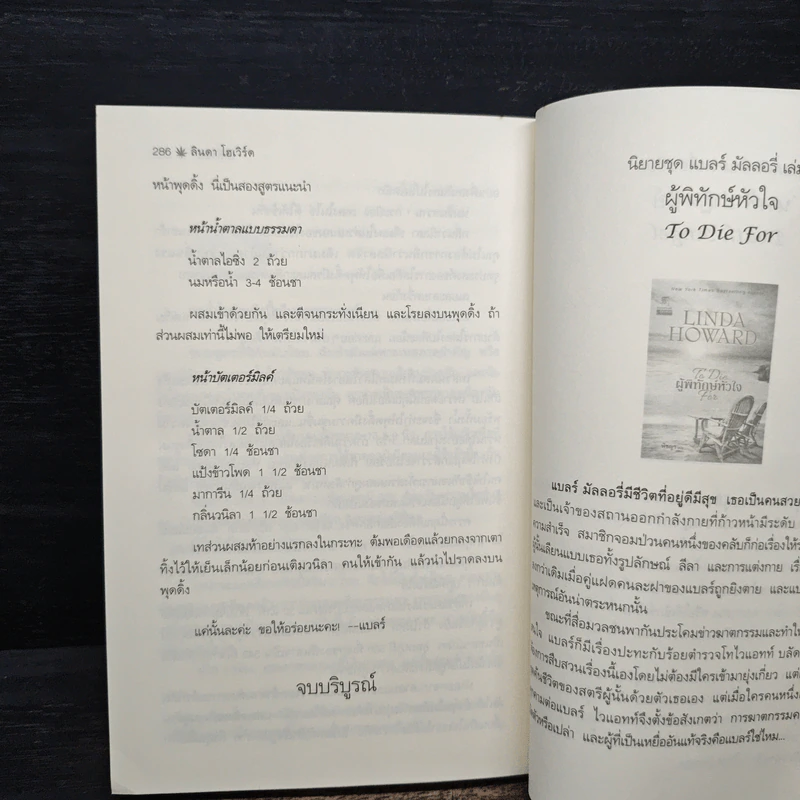 286 ลินดา โฮเวิร์ด
หน้าพุดดิ้ง นี่เป็นสองสูตรแนะนำ
หน้าน้ำตาลแบบธรรมดา
น้ำตาลไอซิ่ง 2 ถ้วย
นมหรือน้ำ 3-4 ช้อนชา
ผสมเข้าด้วยกัน และตีจนกระทั่งเนียน และโรยลงบนพุดดิ้ง ถ้า
ส่วนผสมเท่านี้ไม่พอ ให้เตรียมใหม่
หน้าบัตเตอร์มิลค์
บัตเตอร์มิลค์ 1/4 ถ้วย
น้ำตาล 1/2 ถ้วย
โซดา 1/4 ช้อนชา
แป้งข้าวโพด 1 1/2 ช้อนชา
มาการีน 1/4 ถ้วย
กลิ่นวนิลา 1 1/2 ช้อนชา
เทส่วนผสมห้าอย่างแรกลงในกระทะ ต้มพอเดือดแล้วยกลงจากเตา
ทิ้งไว้ให้เย็นเล็กน้อยก่อนเติมวนิลา คนให้เข้ากัน แล้วนำไปราดลงบน
พุดดิ้ง
แค่นั้นละค่ะ ขอให้อร่อยนะคะ! --แบลร์
จบบริบูรณ์
นิยายชุด แบลร์ มัลลอรี่ เล่ม
ผู้พิทักษ์หัวใจ
To Die For
New York Times Bestselling Author
LINDA
HOWARD
To Die
ผู้พิทักษ์หัวใจ
For
แบลร์ มัลลอรี่มีชีวิตที่อยู่ดีมีสุข เธอเป็นคนสวย
และเป็นเจ้าของสถานออกกำลังกายที่ก้าวหน้ามีระดับ
ความสำเร็จ สมาชิกจอมป่วนคนหนึ่งของคลับก็ก่อเรื่องให้
ผู้นั้นเลียนแบบเธอทั้งรูปลักษณ์ ลีลา และการแต่งกาย
กว่าเดิมเมื่อคู่แฝดคนละฝาของแบลร์ถูกยิงตาย
เหตุการณ์อันน่าตระหนกนั้น
ขณะที่สื่อมวลชนพากันประโคมข่าวฆาตกรรมและทำให้
แบลร์ก็มีเรื่องปะทะกับร้อยตำรวจโทไวแอทท์
การสืบสวนเรื่องนี้เองโดยไม่ต้องมีใครเข้ามายุ่งเกี่ยว แต่
ชีวิตของสตรีผู้นั้นด้วยตัวเธอเอง แต่เมื่อใครคนหนึ่ง
ต่อแบลร์ ไวแอทท์จึงตั้งข้อสังเกตว่า
หรือเปล่า และผู้ที่เป็นเหยื่ออันแท้จริงคือแบลร์ใช่ไหม...